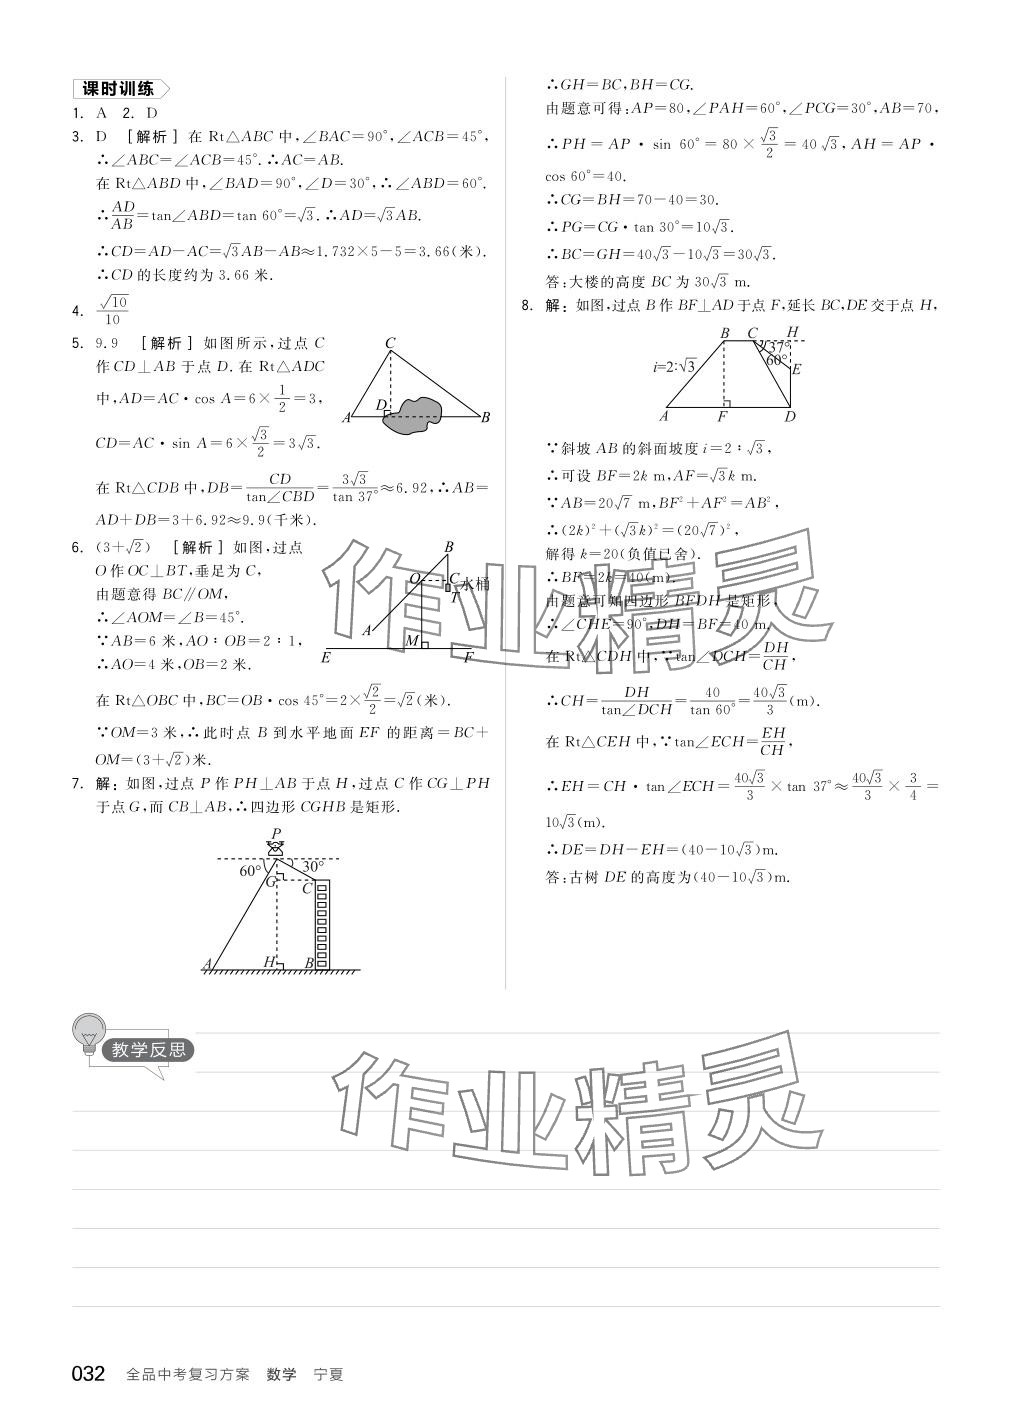 课时训练
1. A 2. D
3. D [解析] 在 Rt△ABC 中,∠BAC=90°,∠ACB=45°,
∴∠ABC=∠ACB=45°.∴AC=AB.
在 Rt△ABD 中,∠BAD=90°,∠D=30°,∴∠ABD=60°.
∴AD/AB=tan∠ABD=tan 60°=√3.∴AD=√3AB.
∴CD=AD-AC=√3AB-AB≈1.732×5-5=3.66(米).
∴CD 的长度约为 3.66 米.
4. √10/10
5. 9.9 [解析] 如图所示,过点 C
作 CD⊥AB 于点 D. 在 Rt△ADC
中,AD=AC·cos A=6×1/2=3,
CD=AC·sin A=6×√3/2=3√3.
C
A
D
B
在 Rt△CDB 中,DB=CD/tan∠CBD=3√3/tan 37°≈6.92,∴AB=
AD+DB=3+6.92≈9.9(千米).
6. (3+√2) [解析] 如图,过点
O 作 OC⊥BT,垂足为 C,
由题意得 BC∥OM,
∴∠AOM=∠B=45°.
∵AB=6 米,AO∶OB=2∶1,
∴AO=4 米,OB=2 米.
B
O
C
水桶
T
A
M
E
F
在 Rt△OBC 中,BC=OB·cos 45°=2×√2/2=√2(米).
∵OM=3 米,∴此时点 B 到水平地面 EF 的距离=BC+
OM=(3+√2)米.
7. 解:如图,过点 P 作 PH⊥AB 于点 H,过点 C 作 CG⊥PH
于点 G,而 CB⊥AB,∴四边形 CGHB 是矩形.
P
60°
30°
G
C
A
H
B
∴GH=BC,BH=CG.
由题意可得:AP=80,∠PAH=60°,∠PCG=30°,AB=70,
∴PH=AP·sin 60°=80×√3/2=40√3,AH=AP·
cos 60°=40.
∴CG=BH=70-40=30.
∴PG=CG·tan 30°=10√3.
∴BC=GH=40√3-10√3=30√3.
答:大楼的高度 BC 为 30√3 m.
8. 解:如图,过点 B 作 BF⊥AD 于点 F,延长 BC,DE 交于点 H,
B
C
H
37°
60°
i=2:√3
E
A
F
D
∵斜坡 AB 的斜面坡度 i=2∶√3,
∴可设 BF=2k m,AF=√3k m.
∵AB=20√7 m,BF²+AF²=AB²,
∴(2k)²+(√3k)²=(20√7)²,
解得 k=20(负值已舍).
∴BF=2k=40(m).
由题意可知四边形 BFDH 是矩形,
∴∠CHE=90°,DH=BF=40 m.
在 Rt△CDH 中,∵tan∠DCH=DH/CH,
∴CH=DH/tan∠DCH=40/tan 60°=40√3/3(m).
在 Rt△CEH 中,∵tan∠ECH=EH/CH,
∴EH=CH·tan∠ECH=40√3/3×tan 37°≈40√3/3×3/4=
10√3(m).
∴DE=DH-EH=(40-10√3)m.
答:古树 DE 的高度为(40-10√3)m.
作业精灵
教学反思
作业精灵
032 全品中考复习方案 数学 宁夏